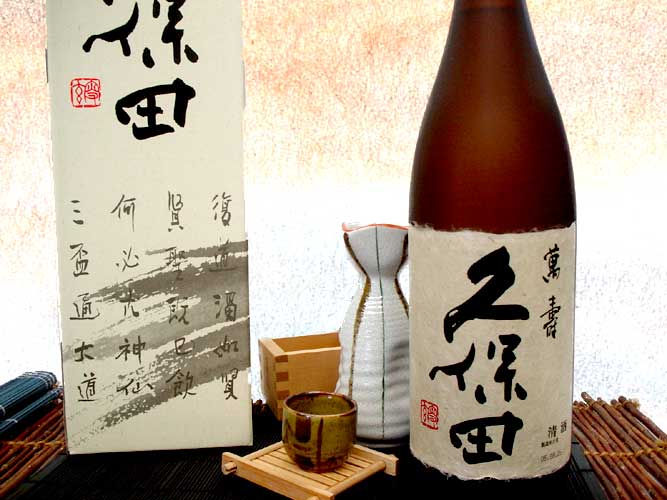 保田
復道濁如賢
賢聖既已飲
何必求神仙
三盃通大道
萬壽
久保田
清酒